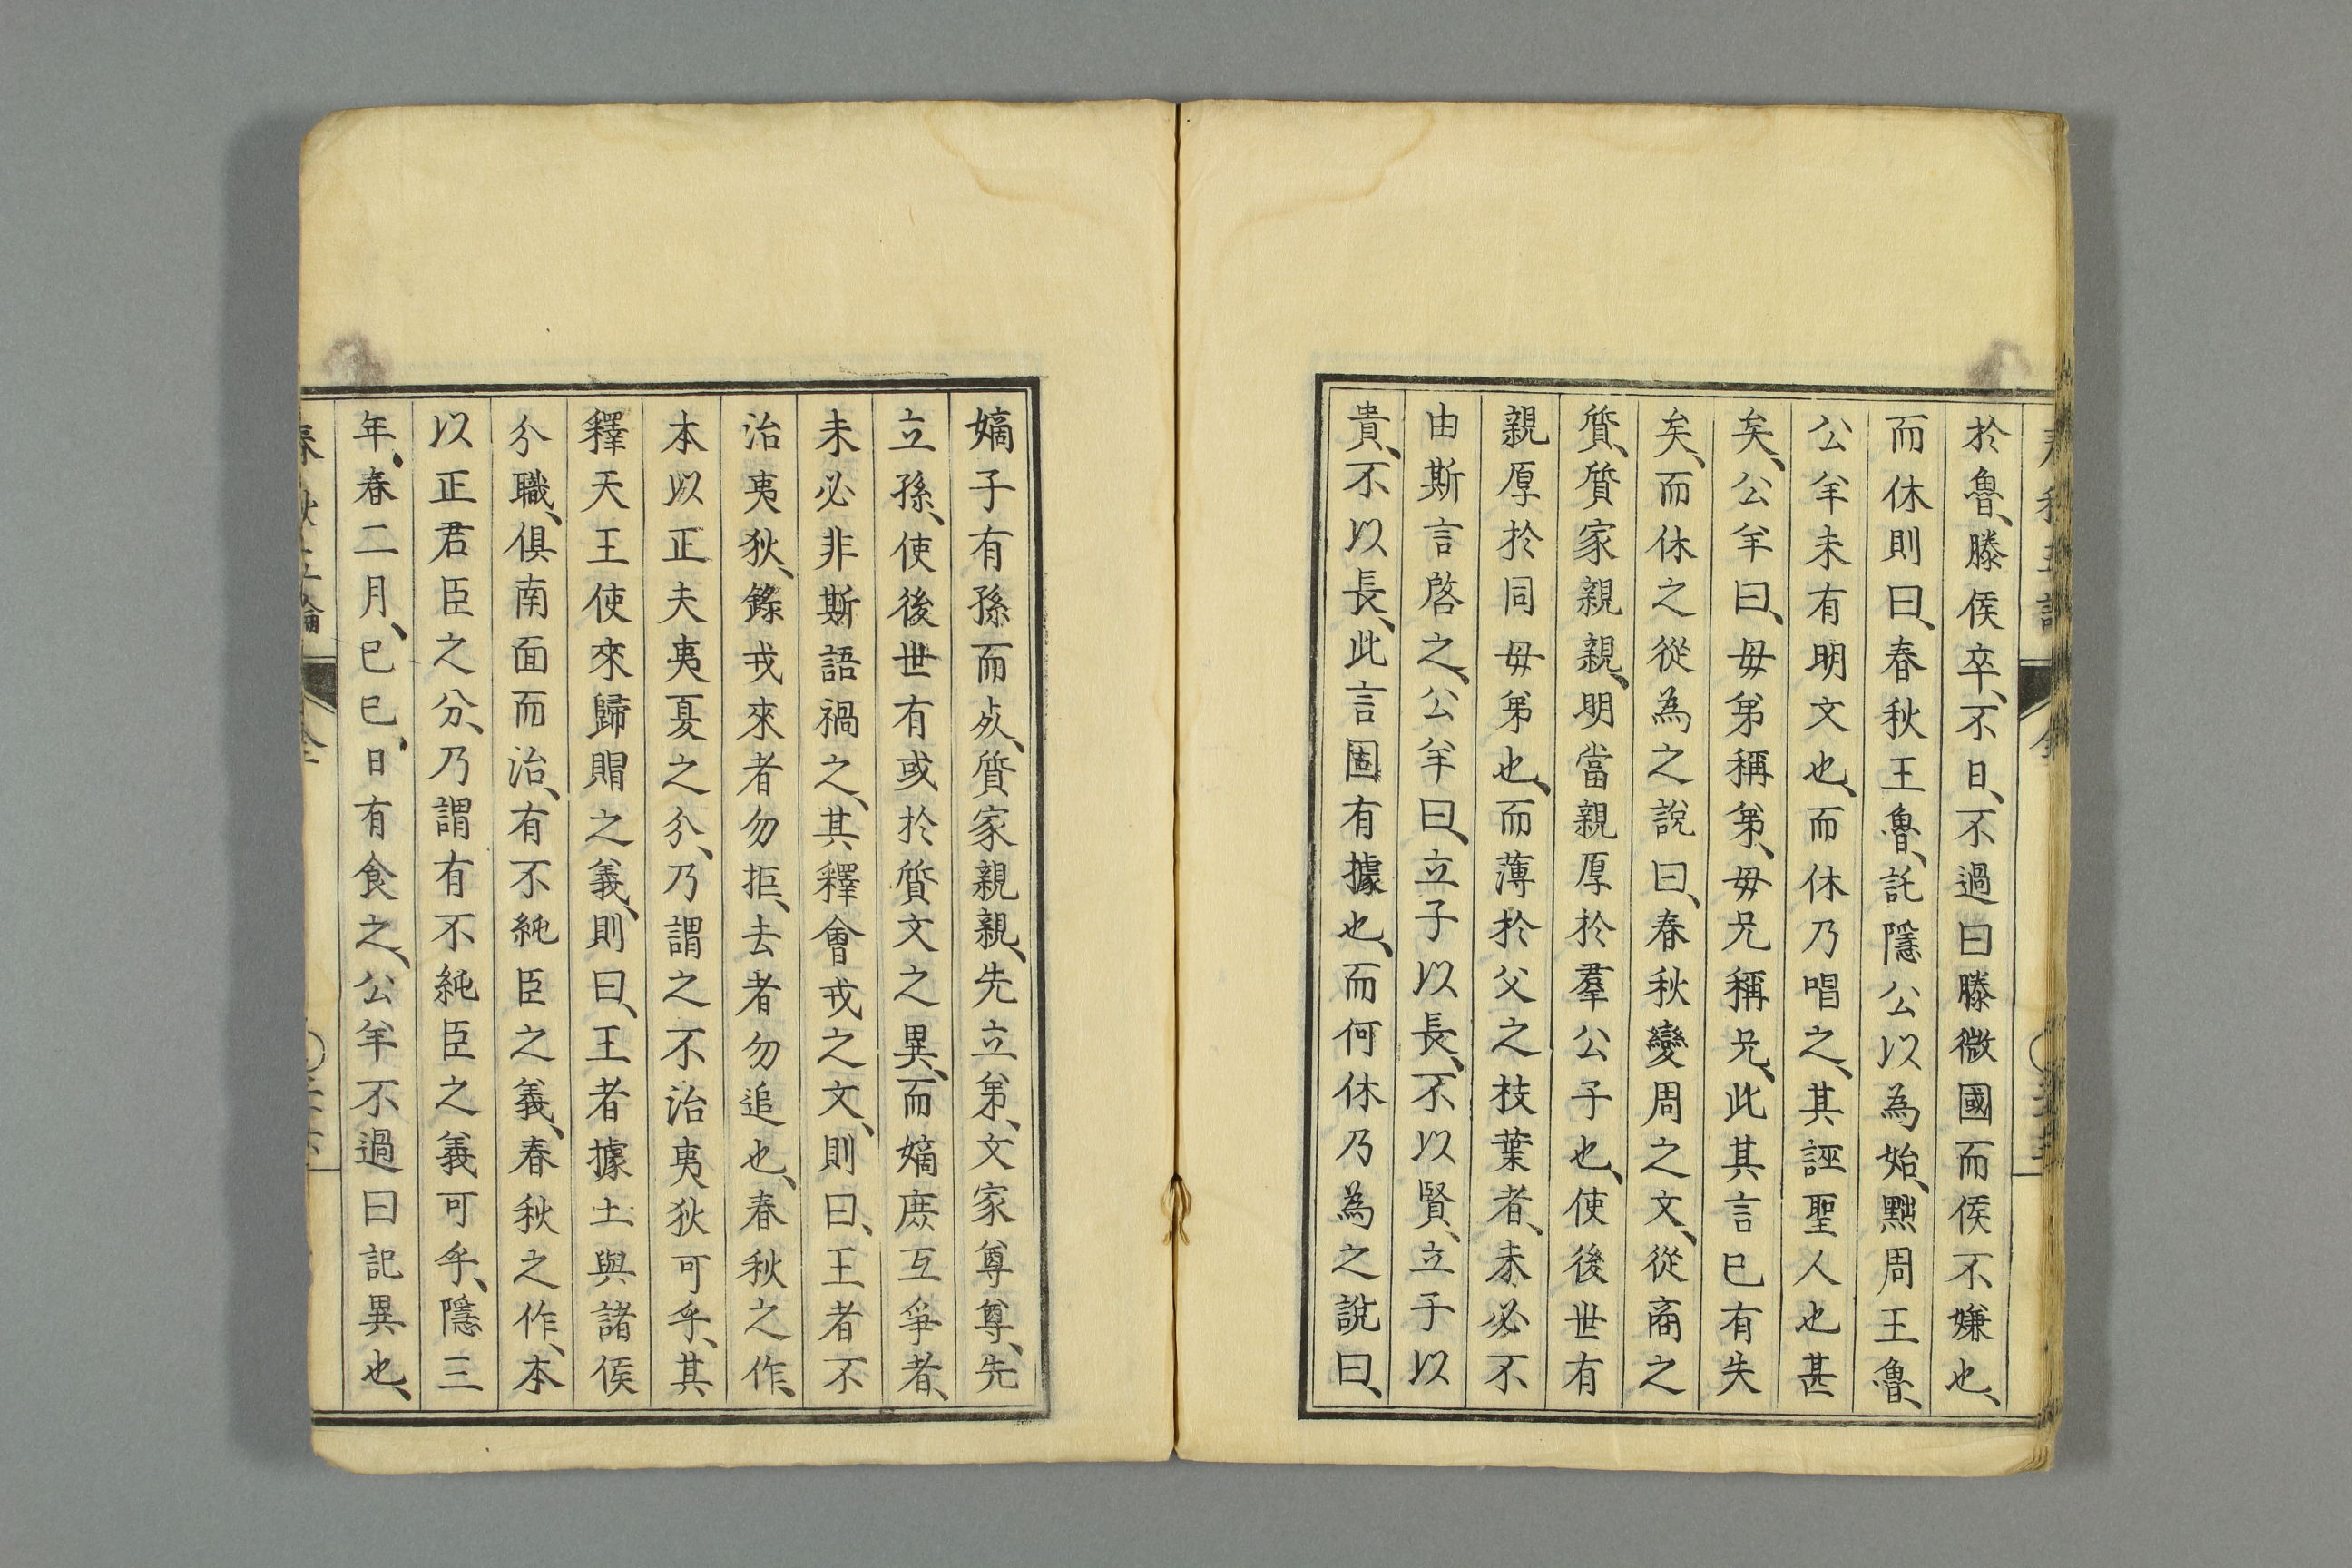 於魯、滕侯卒、不日、不過曰滕微國而侯不嫌也、
而休則曰、春秋王魯、託隱公以為始、黜周王魯、
公羊未有明文也、而休乃唱之、其誣聖人也甚
矣、公羊曰、母弟稱弟、母兄稱兄、此其言已有失
矣、而休之從為之說曰、春秋變周之文、從商之
質、質家親親、明當親厚於羣公子也、使後世有
親厚於同母弟也、而薄於父之枝葉者、未必不
由斯言啓之、公羊曰、立子以長、不以賢、立子以
貴、不以長、此言固有據也、而何休乃為之說曰、
嫡子有孫而死、質家親親、先立弟、文家尊尊、先
立孫、使後世有或於質文之異、而嫡庶互爭者、
未必非斯語禍之、其釋會戎之文、則曰、王者不
治夷狄、錄戎來者勿拒、去者勿追也、春秋之作、
本以正夫夷夏之分、乃謂之不治夷狄可乎、其
釋天王使來歸賵之義、則曰、王者據土與諸侯
分職、俱南面而治、有不純臣之義、春秋之作、本
以正君臣之分、乃謂有不純臣之義可乎、隱三
年、春二月、己巳、日有食之、公羊不過曰記異也、